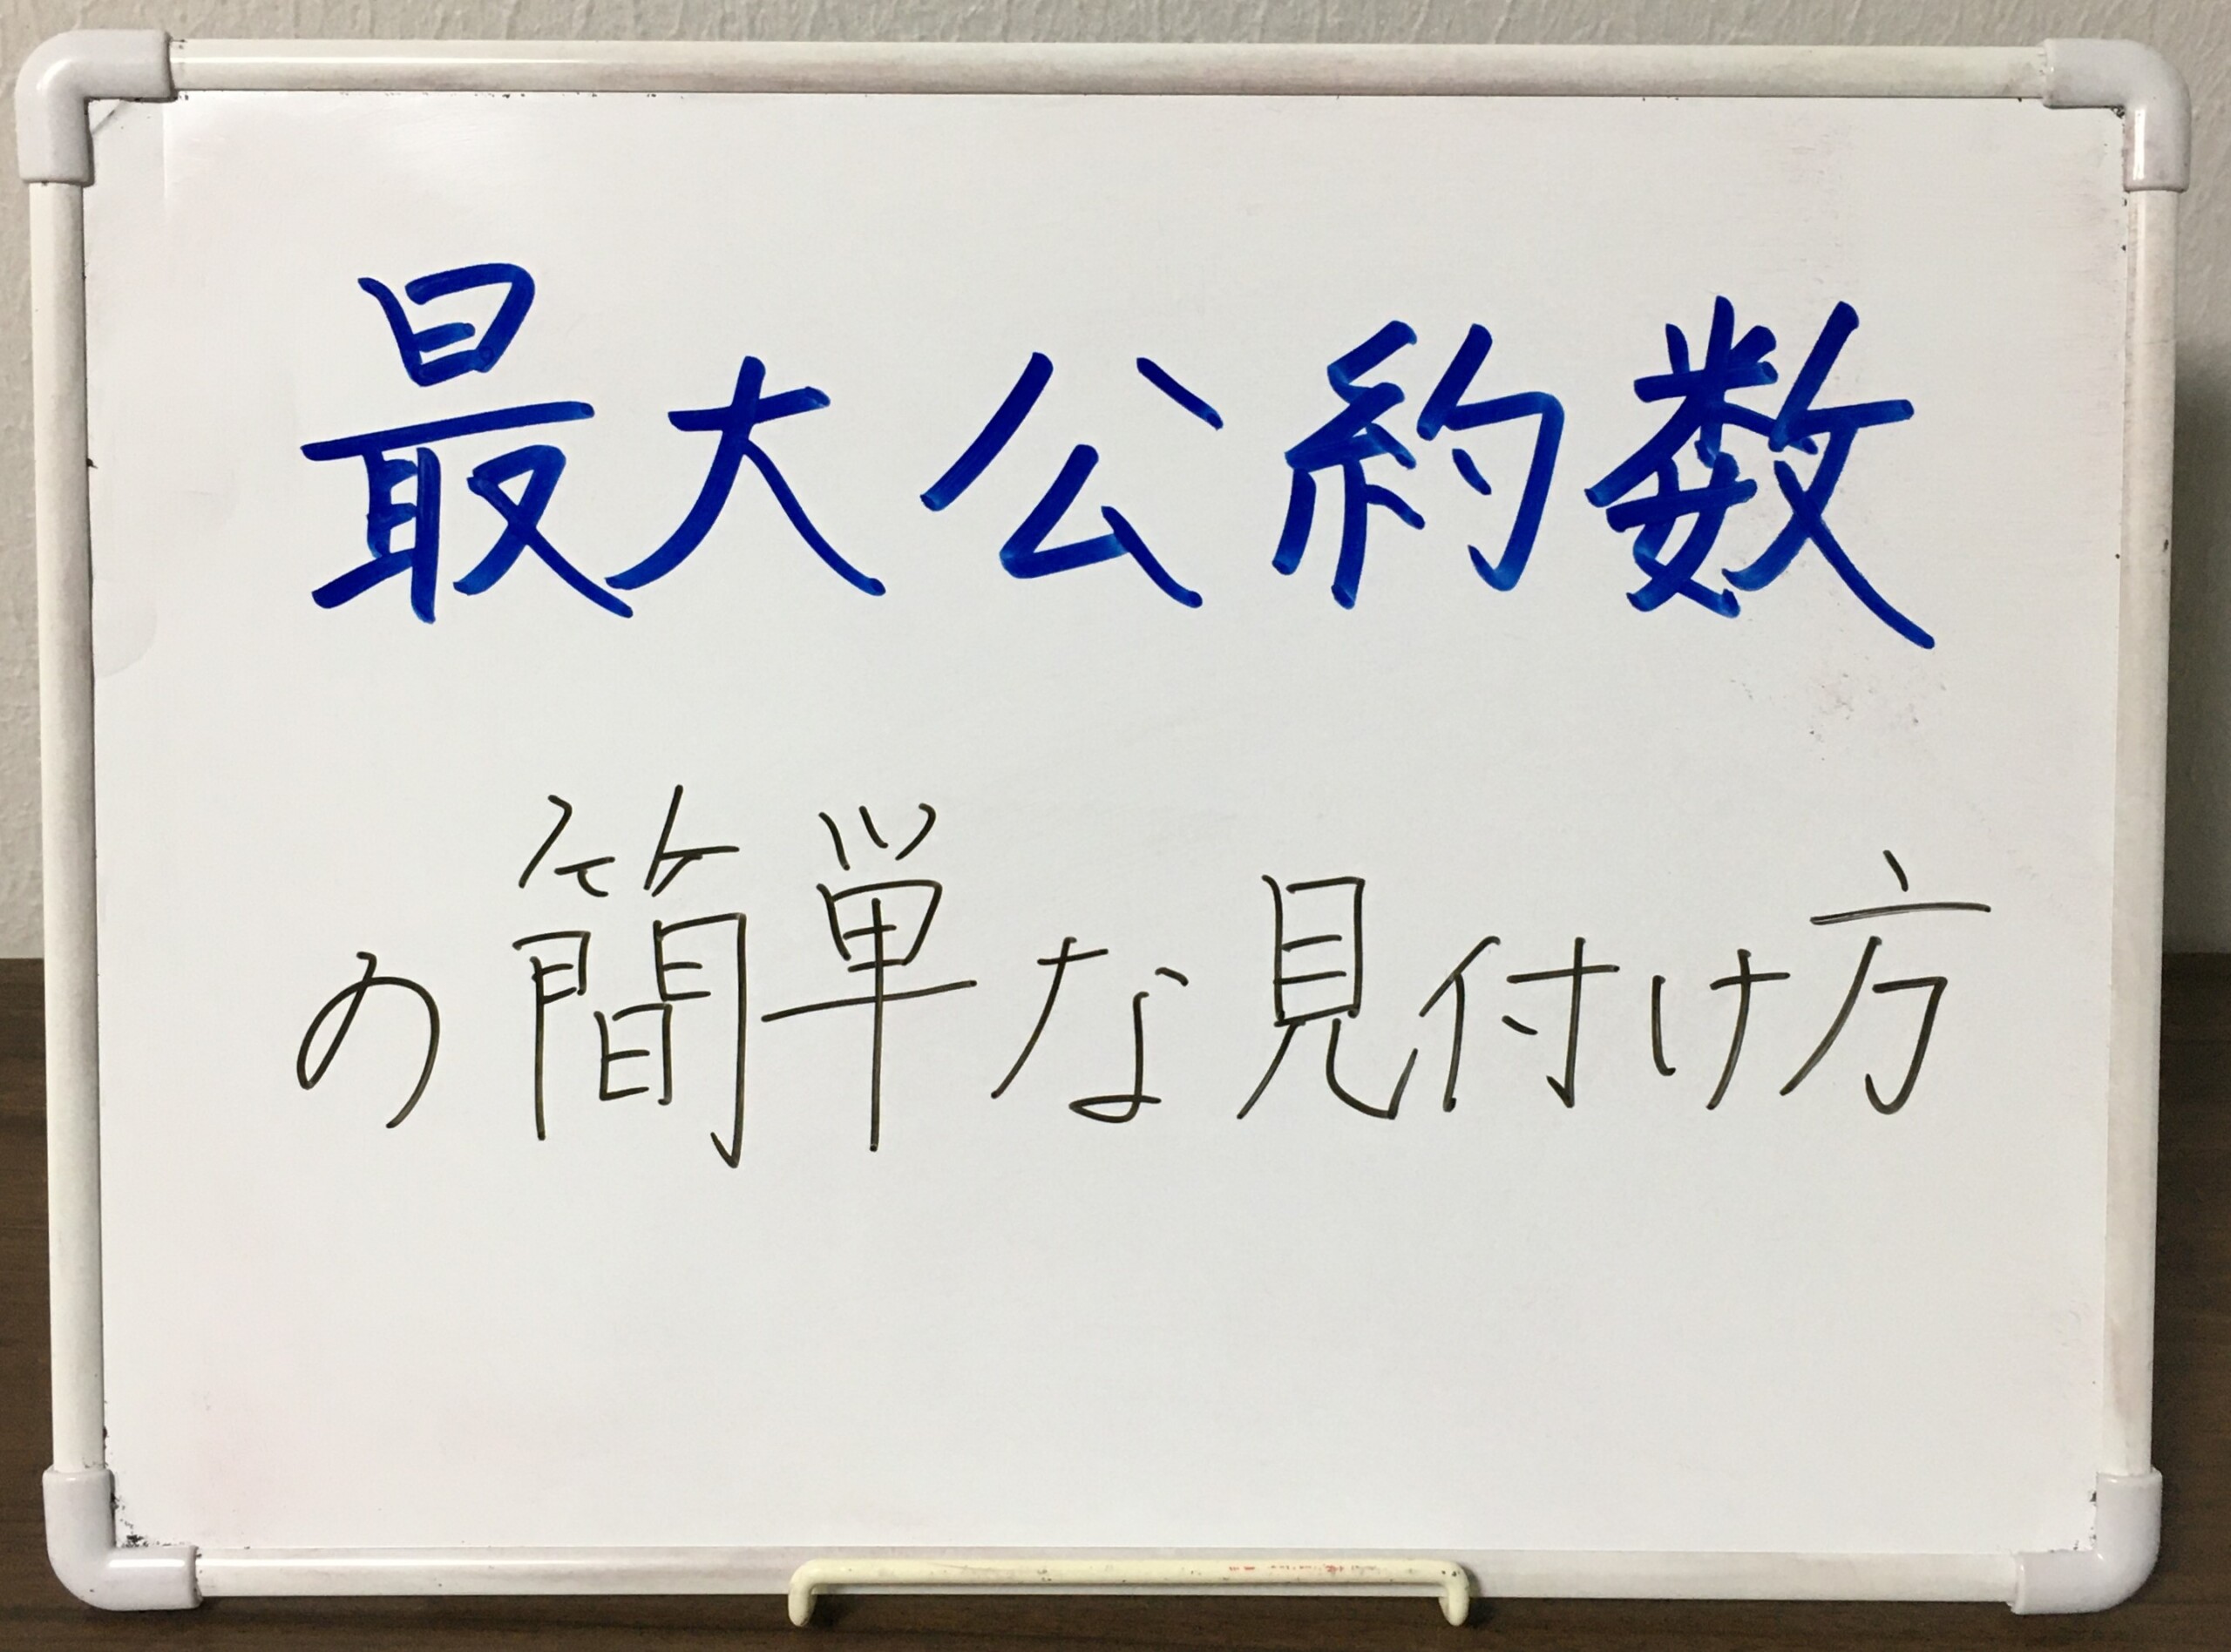 最大公約数
の簡単な見付け方